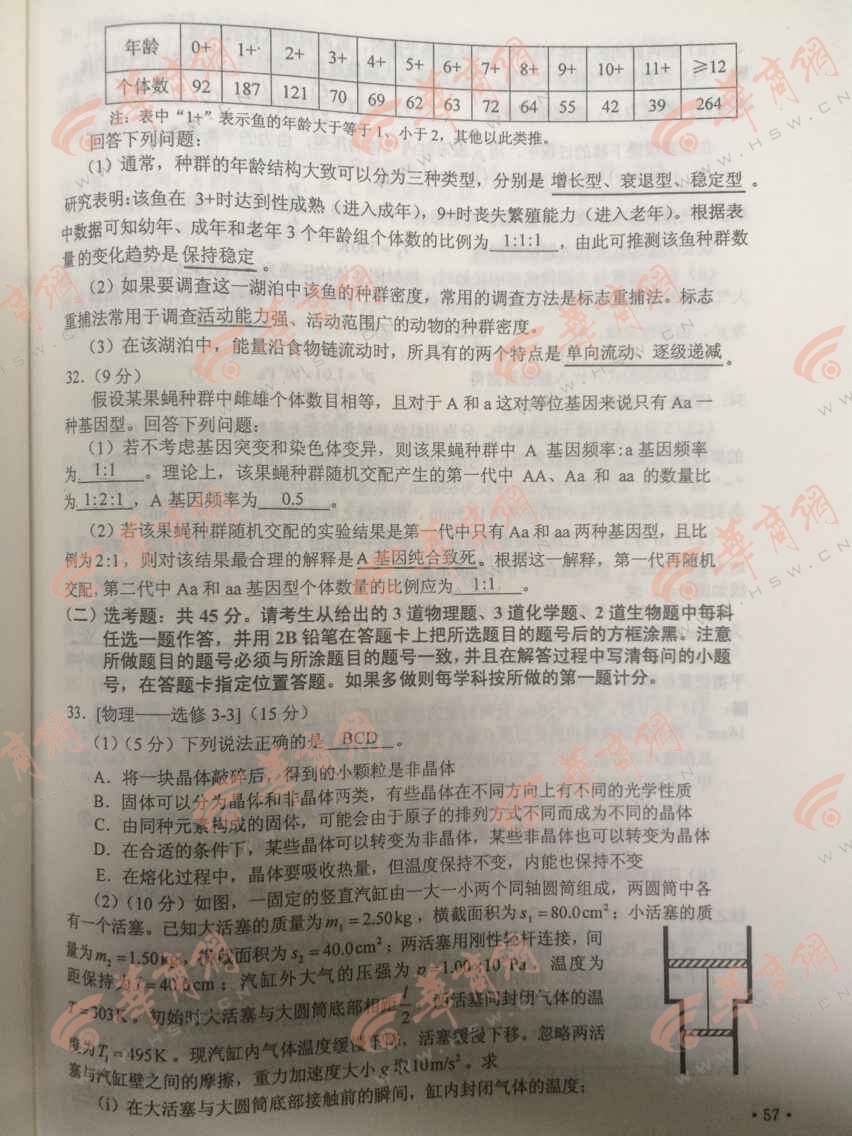 年龄 0+ 1+ 2+ 3+ 4+ 5+ 6+ 7+ 8+ 9+ 10+ 11+ ≥12
个体数 92 187 121 70 69 62 63 72 64 55 42 39 264
注：表中“1+”表示鱼的年龄大于等于1、小于2，其他以此类推。
回答下列问题：
（1）通常，种群的年龄结构大致可以分为三种类型，分别是 增长型、衰退型、稳定型 。
研究表明：该鱼在 3+时达到性成熟（进入成年），9+时丧失繁殖能力（进入老年）。根据表
中数据可知幼年、成年和老年 3 个年龄组个体数的比例为 1:1:1 ，由此可推测该鱼种群数
量的变化趋势是 保持稳定 。
（2）如果要调查这一湖泊中该鱼的种群密度，常用的调查方法是标志重捕法。标志
重捕法常用于调查活动能力强、活动范围广的动物的种群密度。
（3）在该湖泊中，能量沿食物链流动时，所具有的两个特点是 单向流动、逐级递减 。
32.（9 分）
假设某果蝇种群中雌雄个体数目相等，且对于 A 和 a 这对等位基因来说只有 Aa 一
种基因型。回答下列问题：
（1）若不考虑基因突变和染色体变异，则该果蝇种群中 A 基因频率:a 基因频率
为 1:1 。理论上，该果蝇种群随机交配产生的第一代中 AA、Aa 和 aa 的数量比
为 1:2:1 ，A 基因频率为 0.5 。
（2）若该果蝇种群随机交配的实验结果是第一代中只有 Aa 和 aa 两种基因型，且比
例为2:1，则对该结果最合理的解释是A 基因纯合致死。根据这一解释，第一代再随机
交配，第二代中 Aa 和 aa 基因型个体数量的比例应为 1:1 。
（二）选考题：共 45 分。请考生从给出的 3 道物理题、3 道化学题、2 道生物题中每科
任选一题作答，并用 2B 铅笔在答题卡上把所选题目的题号后的方框涂黑。注意
所做题目的题号必须与所涂题目的题号一致，并且在解答过程中写清每问的小题
号，在答题卡指定位置答题。如果多做则每学科按所做的第一题计分。
33. [物理——选修 3-3]（15 分）
（1）（5 分）下列说法正确的是 BCD 。
A．将一块晶体敲碎后，得到的小颗粒是非晶体
B．固体可以分为晶体和非晶体两类，有些晶体在不同方向上有不同的光学性质
C．由同种元素构成的固体，可能会由于原子的排列方式不同而成为不同的晶体
D．在合适的条件下，某些晶体可以转变为非晶体，某些非晶体也可以转变为晶体
E．在熔化过程中，晶体要吸收热量，但温度保持不变，内能也保持不变
（2）（10 分）如图，一固定的竖直汽缸由一大一小两个同轴圆筒组成，两圆筒中各
有一个活塞。已知大活塞的质量为m₁=2.50kg，横截面积为s₁=80.0cm²；小活塞的质
量为m₂=1.50kg，横截面积为s₂=40.0cm²；两活塞用刚性轻杆连接，间
距保持为l=40.0cm；汽缸外大气的压强为p=1.00×10 Pa，温度为
T=303K。初始时大活塞与大圆筒底部相距l/2，两活塞间封闭气体的温
度为T₁=495K。现汽缸内气体温度缓慢下降，活塞缓慢下移。忽略两活
塞与汽缸壁之间的摩擦，重力加速度大小g取10m/s²。求
（i）在大活塞与大圆筒底部接触前的瞬间，缸内封闭气体的温度；
·57·
華商網
WWW.HSW.CN